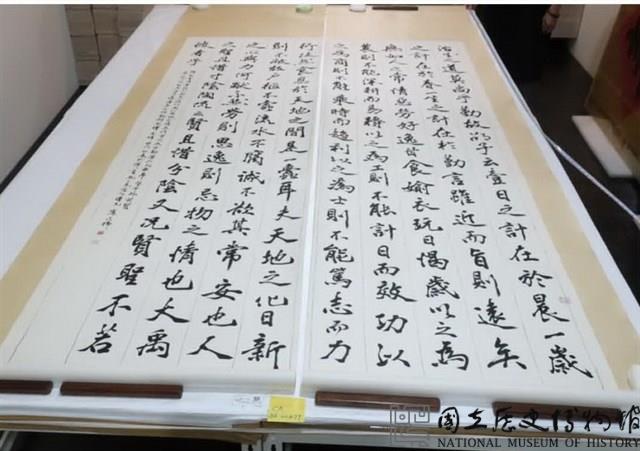 治生之道莫尚乎勤故邵子云壹日之計在於晨一歲
之計在於春一生之計在於勤言雖近而旨則遠矣
無如人之常情惡勞好逸甘食褕衣玩日愒歲以之為
農則不能深耕而易耨以之為工則不能計日而效功以
之為商則不能乘時而趨利以之為士則不能篤志而力
行徒然食息於天地之間是一蠹耳夫天地之化日新
則不敝故戶樞不蠹流水不腐誠不欲其常安也人
之心與力何獨不然勞則思逸則忘物之情也大禹
之聖且惜寸陰陶侃之賢且惜分陰又況賢聖不若
彼者乎
國立歷史博物館
NATIONAL MUSEUM OF HISTORY